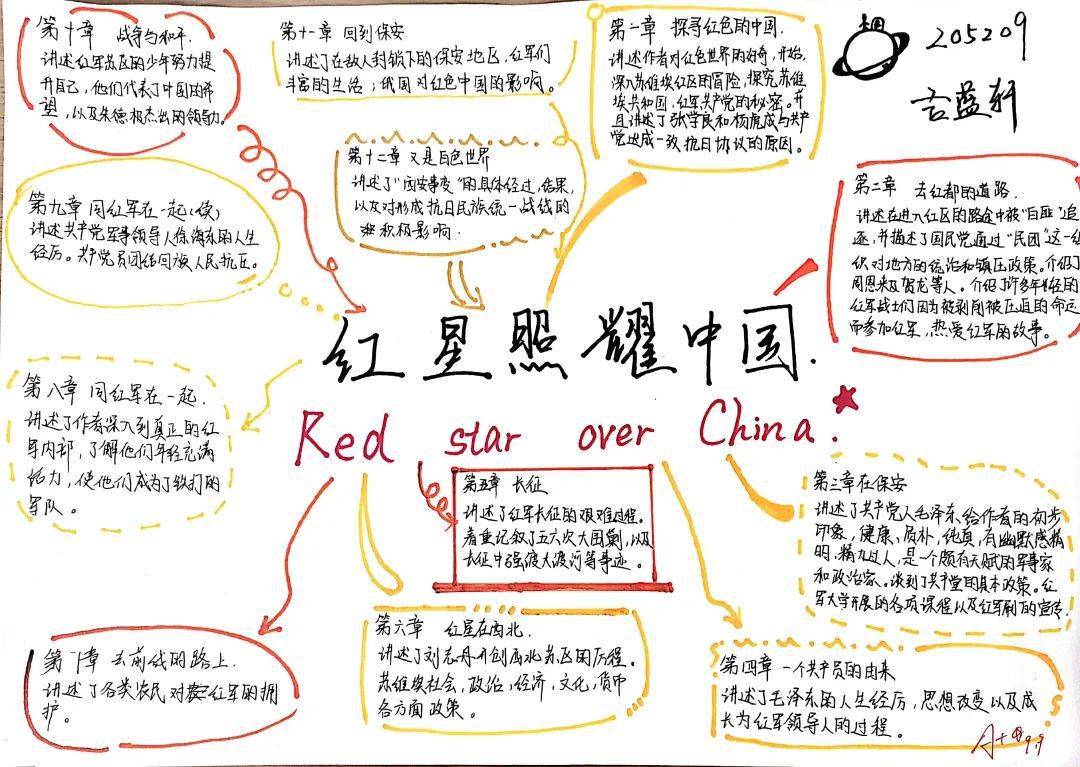 第十章 战争与和平.
讲述红军苏区的少年努力提
升自己，他们代表了中国的希
望，以及朱德极杰出的领导力。
第十一章 回到保安
讲述了在敌人封锁下的保安地区，红军们
丰富的生活；俄国对红色中国的影响。
第一章 探寻红色的中国.
讲述作者对红色世界的好奇，开始
深入苏维埃红区的冒险，探究苏维
埃共和国，红军共产党的秘密。并
且讲述了张学良和杨虎成与共产
党达成一致抗日协议的原因。
205209
第十二章 又是白色世界
讲述了"西安事变"的具体经过，结果，
以及对形成抗日民族统一战线的
积极影响.
第二章 去红都的道路.
讲述在进入红区的路途中被"白匪"追
逐，并描述了国民党通过"民团"这一组
织对地方的统治和镇压政策。介绍了
周恩来及贺龙等人。介绍了许多年轻的
红军战士们因为被剥削被压迫的命运
而参加红军，热爱红军的故事。
第九章 同红军在一起(续)
讲述共产党军事领导人徐海东的人生
经历。共产党员团结回族人民抗压。
红星照耀中国.
Red star over China.
第八章 同红军在一起.
讲述了作者深入到真正的红
军内部，了解他们年轻充满
活力，使他们成为了能打的
军队。
第五章 长征
讲述了红军长征的艰难过程。
着重记叙了五六次大围剿，以及
长征中强渡大渡河等事迹。
第三章在保安
讲述了共产党人毛泽东给作者的初步
印象，健康，质朴，纯真，有幽默感精
明，精力过人，是一个颇有天赋的军事家
和政治家。谈到了共产党的具本政策。红
军大学开展的各项课程以及红军剧团的宣传.
第七章 去前线的路上.
讲述了各类农民对红军的拥
护。
第六章 红星在西北.
讲述了刘志丹开创西北苏区的历程。
苏维埃社会，政治，经济，文化，货币
各方面政策。
第四章 一个共产员的由来
讲述了毛泽东的人生经历，思想改变以及成
长为红军领导人的过程。
A+
9.9